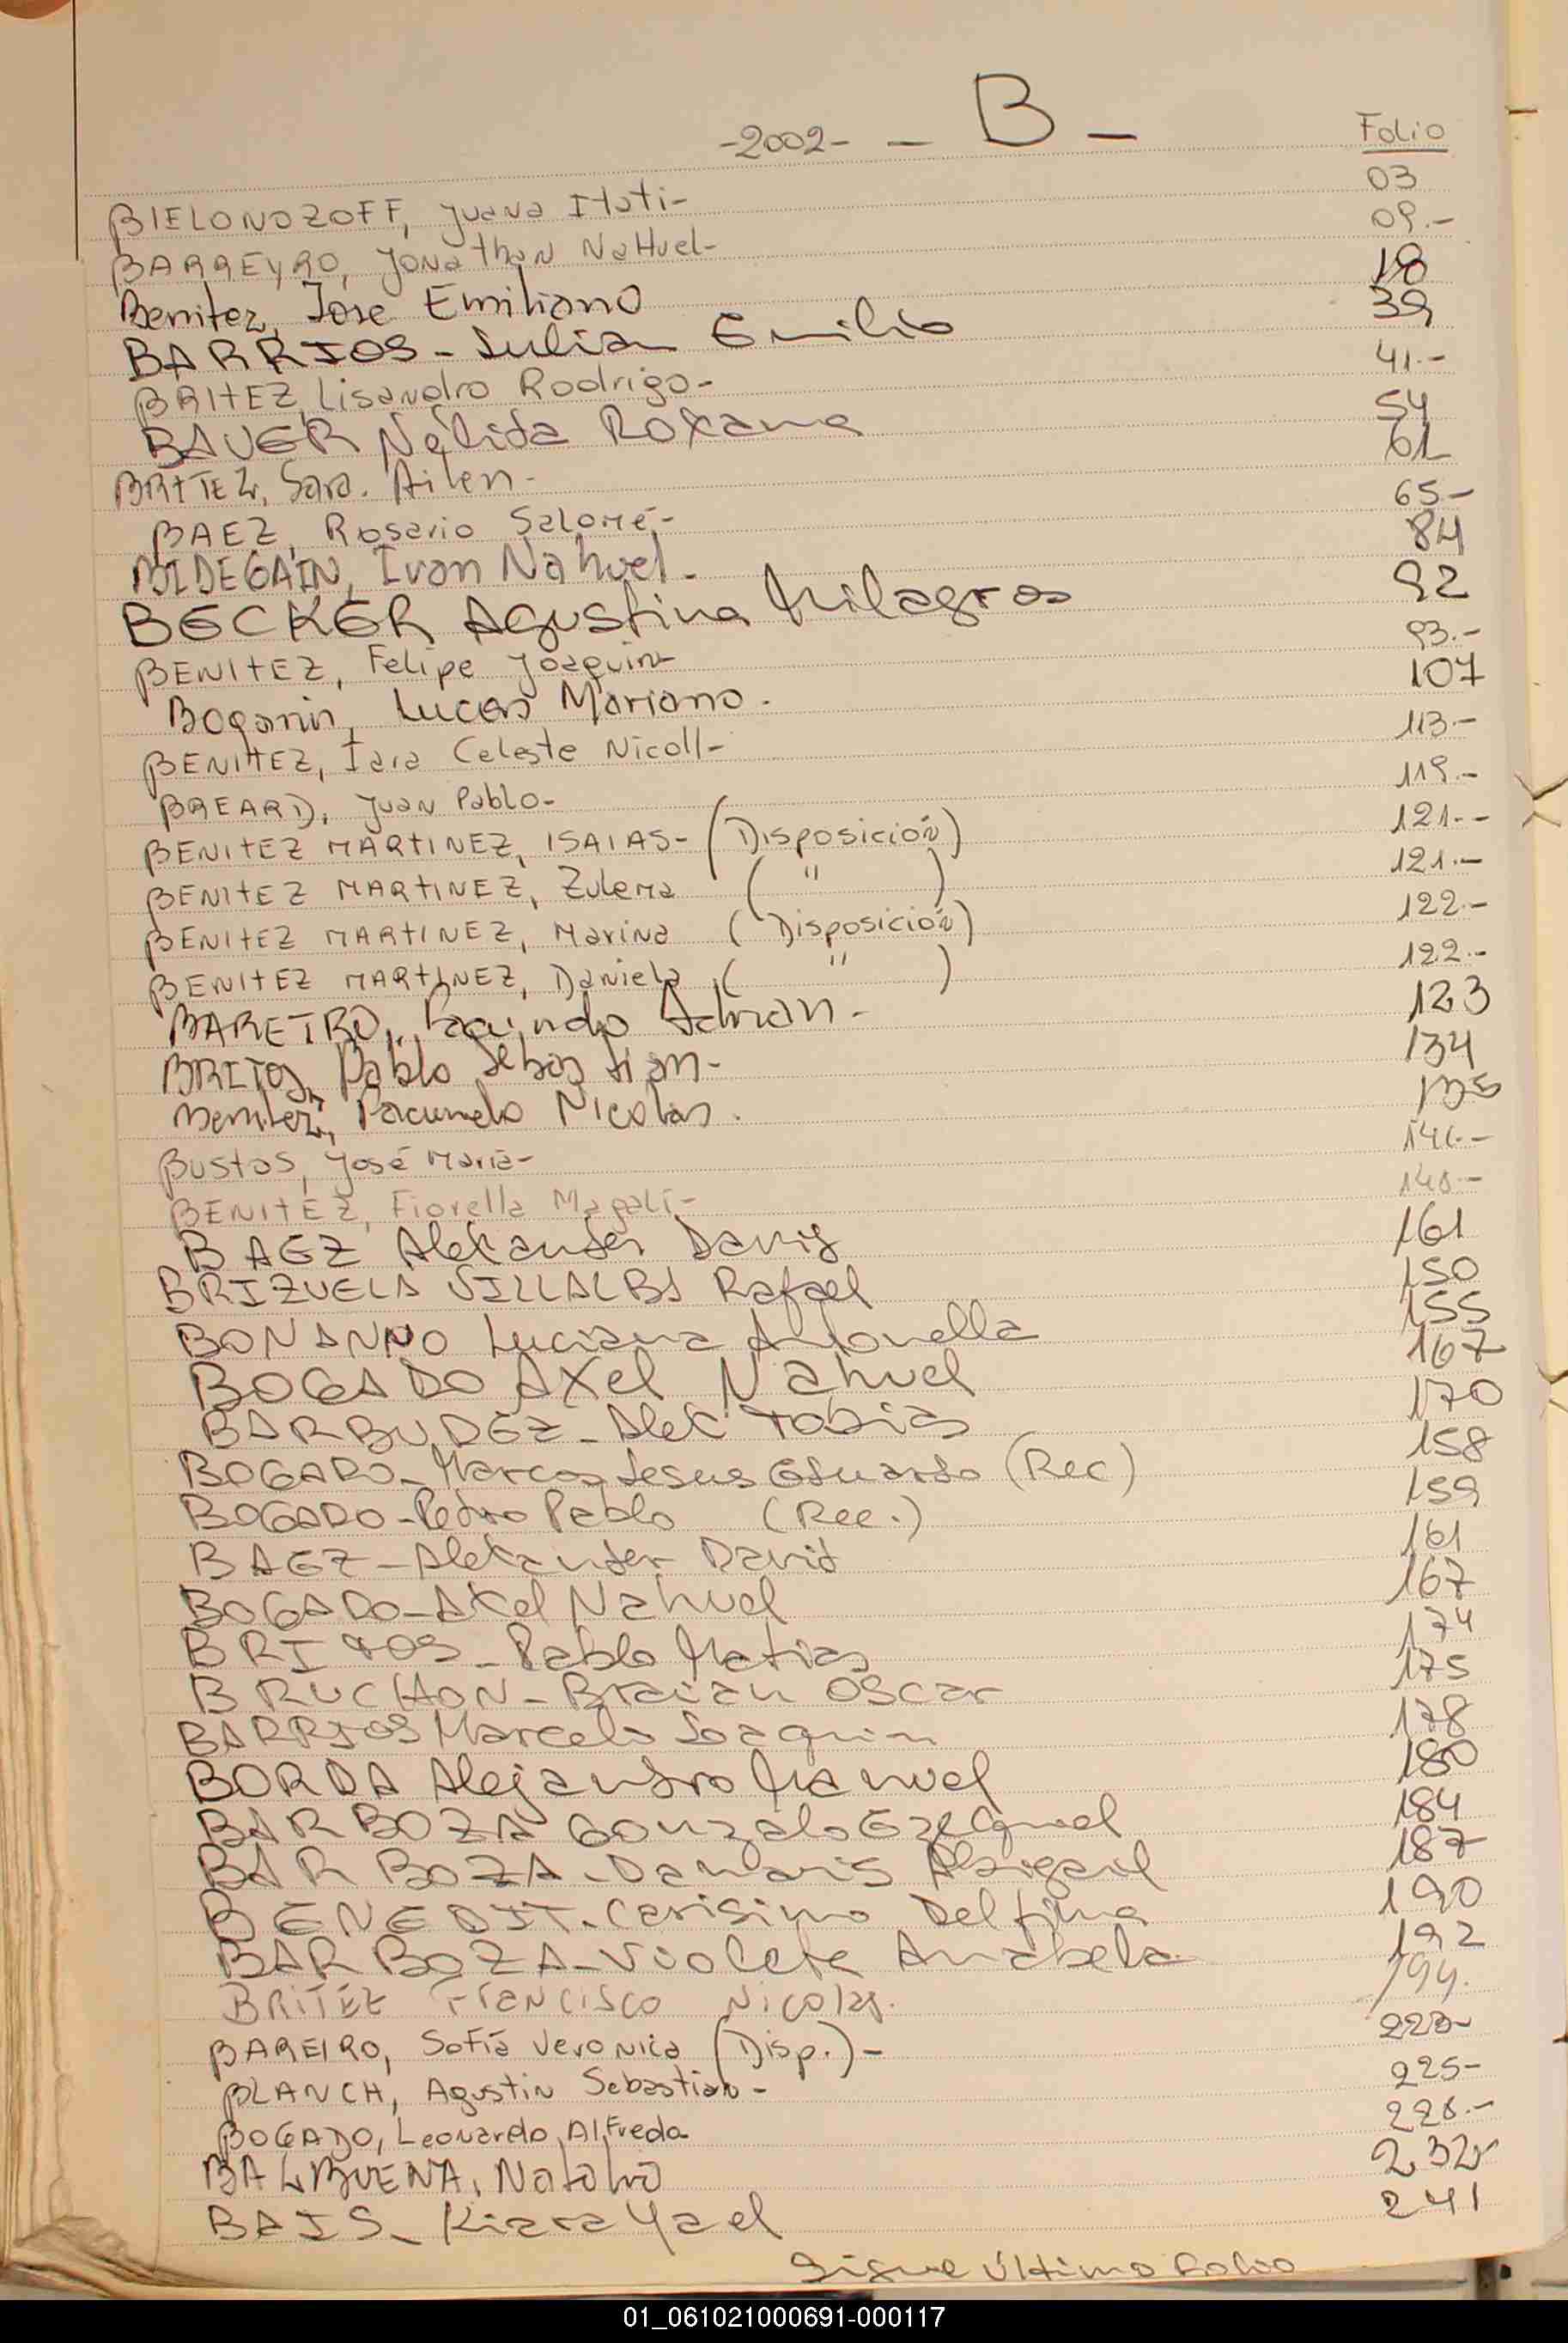 -2002- - B - Folio
BIELONOZOFF, Juana Itati- 03
BARREYRO, Jonathan NaHuel- 09.-
Benitez, Jose Emiliano 18
BARRIOS - Julian Emilio 39
BRITEZ, Lisandro Rodrigo- 41.-
BAUER Nélida Roxana 54
BRITEZ, Sara. Ailen- 61
BAEZ, Rosario Salomé- 65.-
BIDEGAIN, Ivan Nahuel- 84
BECKER Agustina Milagros 92
BENITEZ, Felipe Joaquin- 93.-
Bogarin, Lucas Mariano. 107
BENITEZ, Iara Celeste Nicoll- 113.-
BREARD, Juan Pablo- 119.-
BENITEZ MARTINEZ, ISAIAS- (Disposición) 121.-
BENITEZ MARTINEZ, Zulema ( " ) 121.-
BENITEZ MARTINEZ, Marina (Disposición) 122.-
BENITEZ MARTINEZ, Daniela ( " ) 122.-
BAREIRO, Facundo Adrian- 123
BRITOS, Pablo Sebastian- 134
Benitez, Facundo Nicolas. 135
BUSTOS, José María-
BENITEZ, Fiorella Magalí-
BAEZ Alexander David 161
BRIZUELA VILLALBA Rafael 150
BONANNO Luciana Antonella 155
BOGADO Axel Nahuel 167
BARBUDEZ - Alex Tobias 170
BOGADO - Marcos Jesus Eduardo (Rec) 158
BOGADO - Pedro Pablo (Rec.) 159
BAEZ - Alexander David 161
BOGADO - Axel Nahuel 167
BRITOS - Pablo Matias 174
BRUCHON - Braian Oscar 175
BARRIOS Marcelo Joaquin 178
BORDA Alejandro Manuel 180
BARBOZA Gonzalo Ezequiel 184
BARBOZA - Damaris Abigail 187
BENEDIT - Carisimo Delfina 190
BARBOZA - Violeta Anabela 192
BRITEZ Francisco Nicolas. 194.
BAREIRO, Sofía Veronica (Disp.)- 223-
BLANCH, Agustin Sebastian- 225-
BOGADO, Leonardo Alfredo 228.-
BALBUENA, Natalia 232-
BAIS - Kiara Yael 241
Sigue Último Folio
01_061021000691-000117